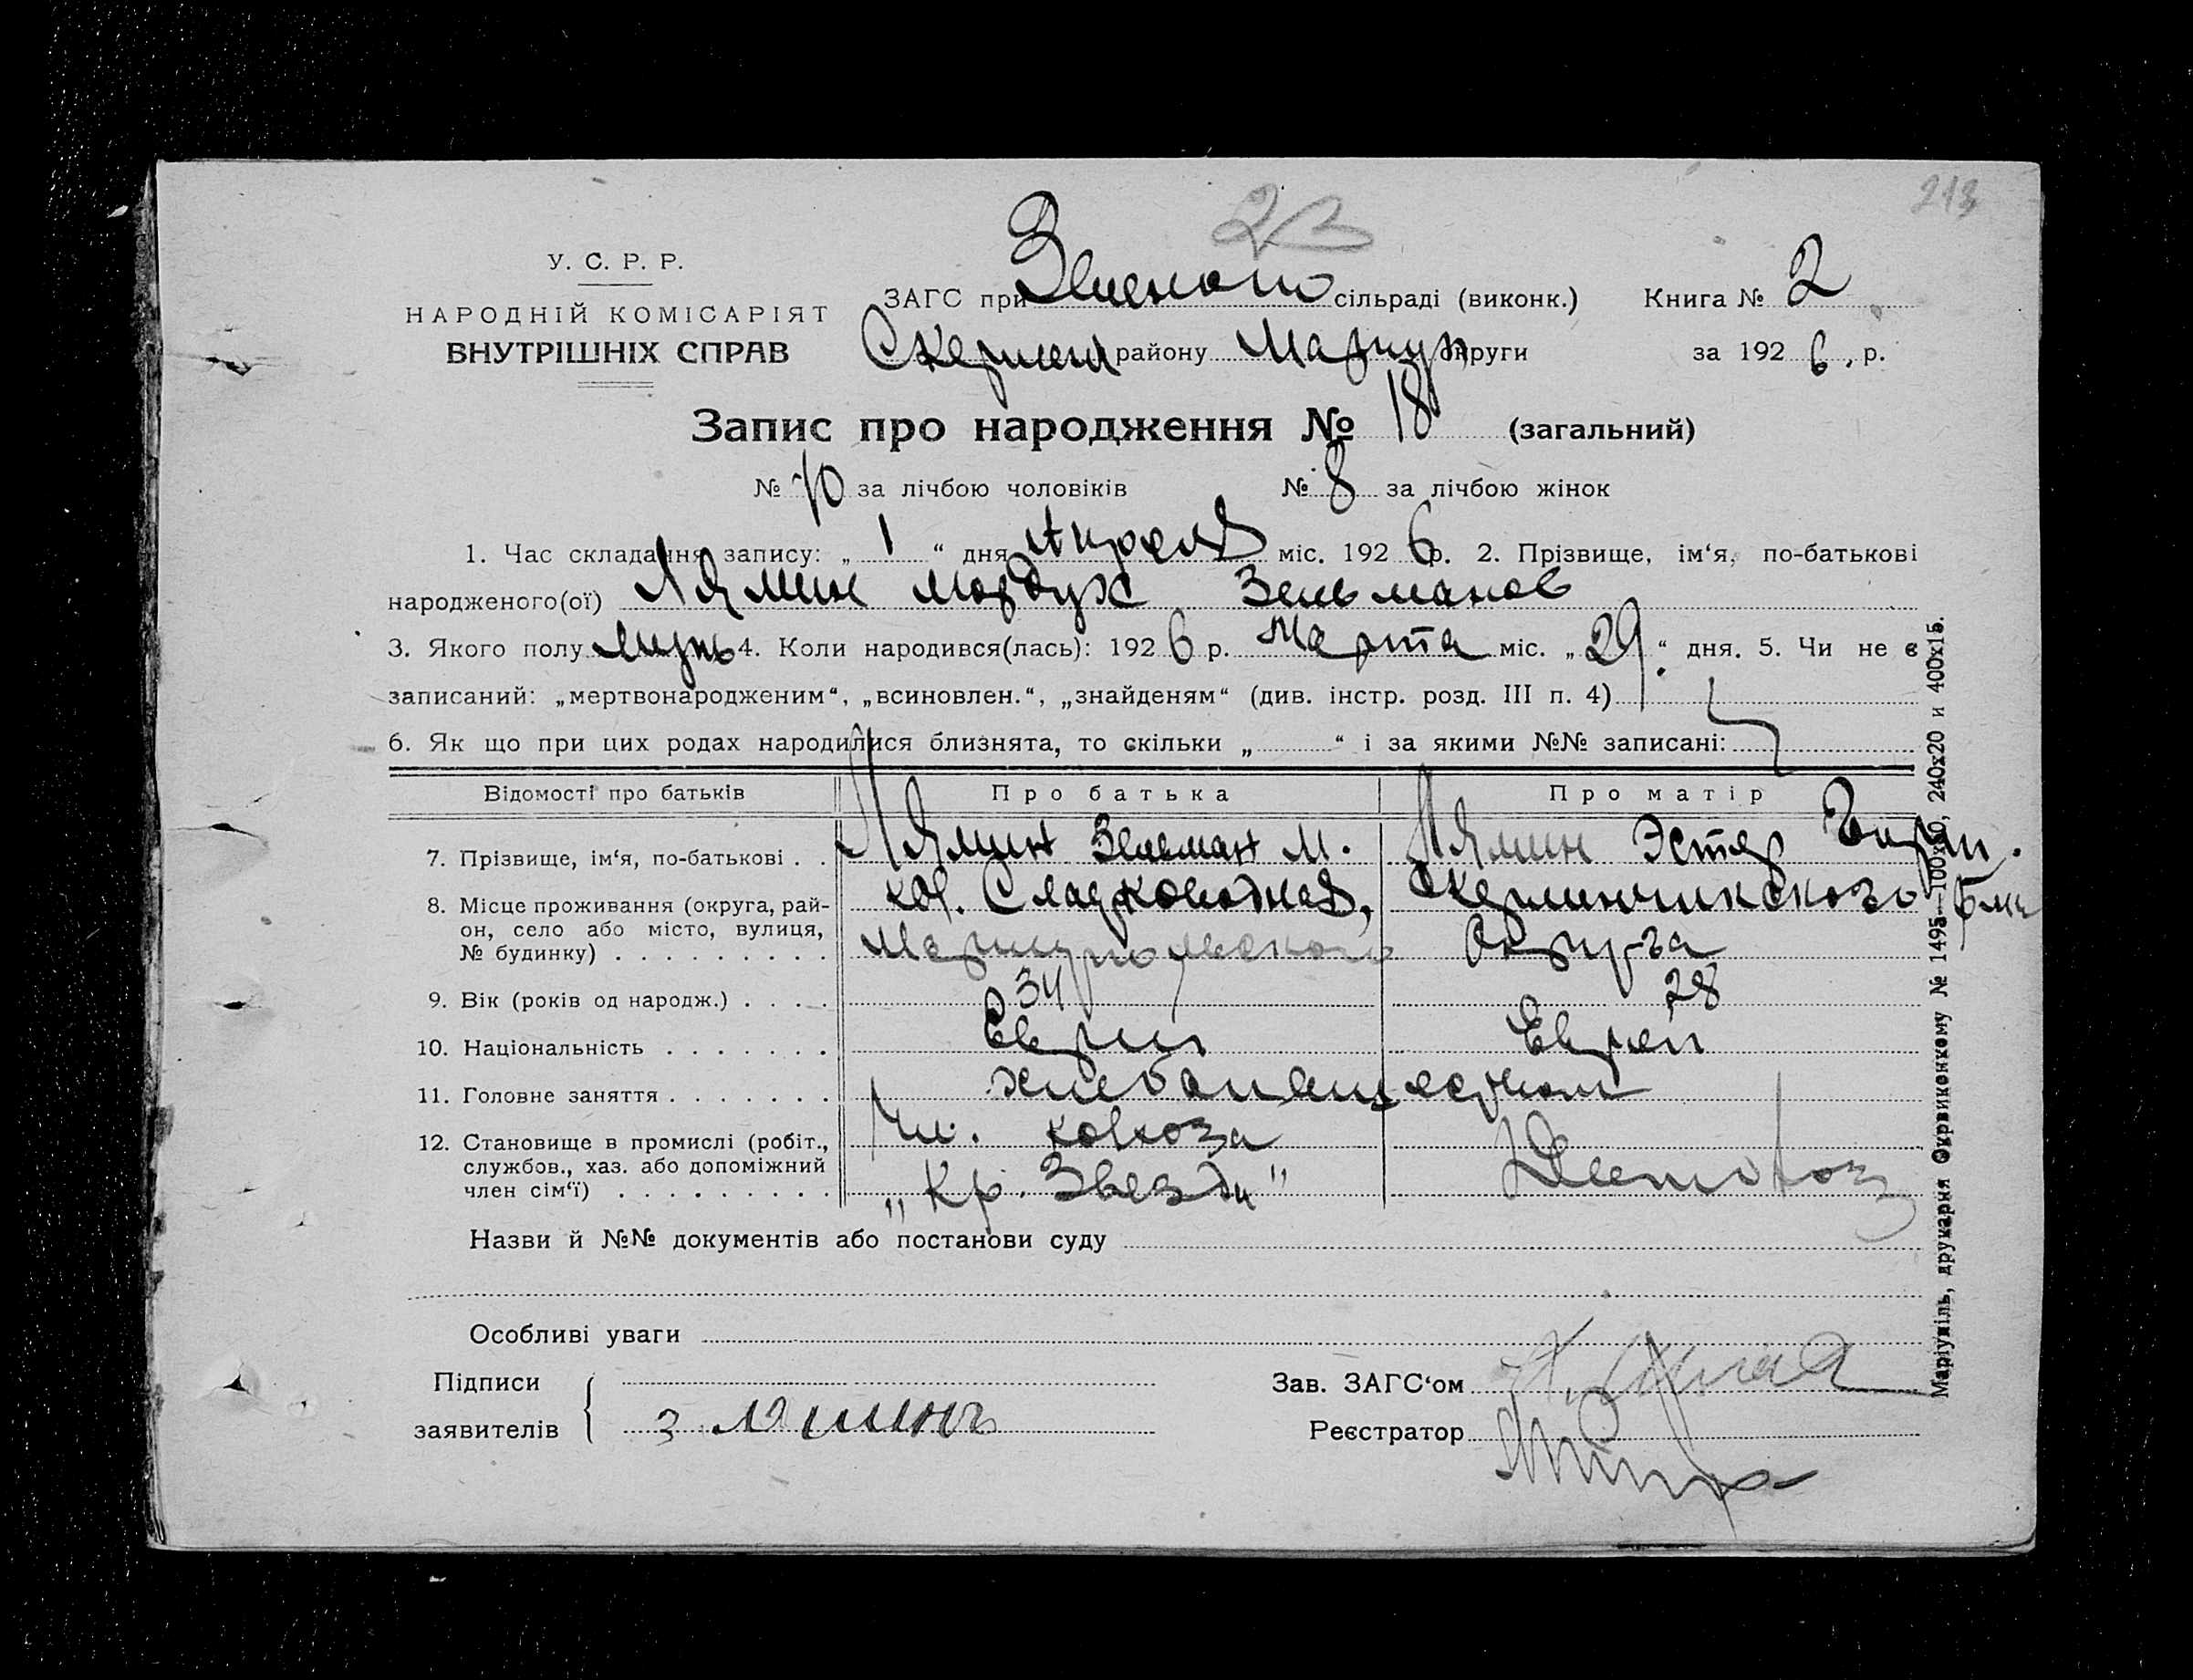 213
23
У. С. Р. Р.
НАРОДНІЙ КОМІСАРІЯТ
ВНУТРІШНІХ СПРАВ
ЗАГС при сільраді (виконк.) Книга № 2
району Мариуп округи за 192 6 р.
Запис про народження № 18 (загальний)
№ 10 за лічбою чоловіків № 8 за лічбою жінок
1. Час складання запису: „ 1 “ дня Апреля міс. 192 6 р. 2. Прізвище, ім‘я, по-батькові
народженого(ої) Лямин Мордух Зельманов
3. Якого полу муж 4. Коли народився(лась): 192 6 р. Марта міс. „ 29 “ дня. 5. Чи не є
записаний: „мертвонародженим“, „всиновлен.“, „знайденям“ (див. інстр. розд. III п. 4)
6. Як що при цих родах народилися близнята, то скільки „ “ і за якими №№ записані:
Відомості про батьків Про батька Про матір
7. Прізвище, ім‘я, по-батькові . . Лямин Зельман М. Лямин Эстер
8. Місце проживання (округа, рай- кол. Сладководная,
он, село або місто, вулиця, Мариупольского Округа
№ будинку) . . . . . . . . .
9. Вік (років од народж.) . . . . 34 28
10. Національність . . . . . . . Еврей Еврей
11. Головне заняття . . . . . . .
12. Становище в промислі (робіт., Чл. колхоза
службов., хаз. або допоміжний
член сім‘ї) . . . . . . . . . „Кр. Звезда“
Назви й №№ документів або постанови суду
Особливі уваги
Підписи Зав. ЗАГС‘ом
заявителів З Лямин Реєстратор
Маріупіль, друкарня Окрвиконкому № 1495—100х50, 240х20 и 400х15.